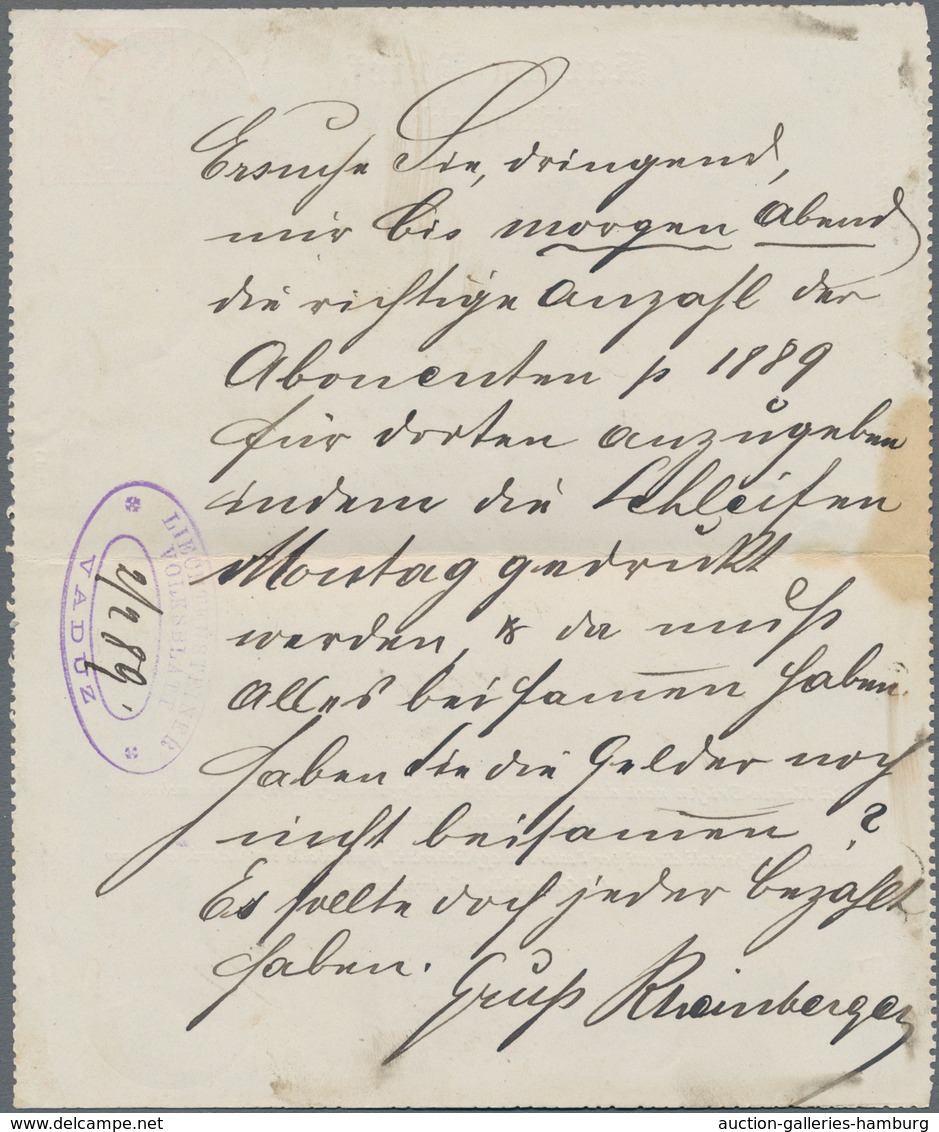 Ersuche Sie, dringend,
mir bis morgen Abend
die richtige Anzahl der
Abonenten p 1889
für dorten anzugeben
indem die Schleifen
Montag gedrukt
werden, & da muß
Alles beisam̅en haben.
haben Sie die Gelder noch
nicht beisam̅en ?
Es sollte doch jeder bezahlt
haben.
Gruß Rheinberger
LIECHTENSTEINER
VOLKSBLATT
VADUZ
2/2 89.
www.delcampe.net
auction-galleries-hamburg